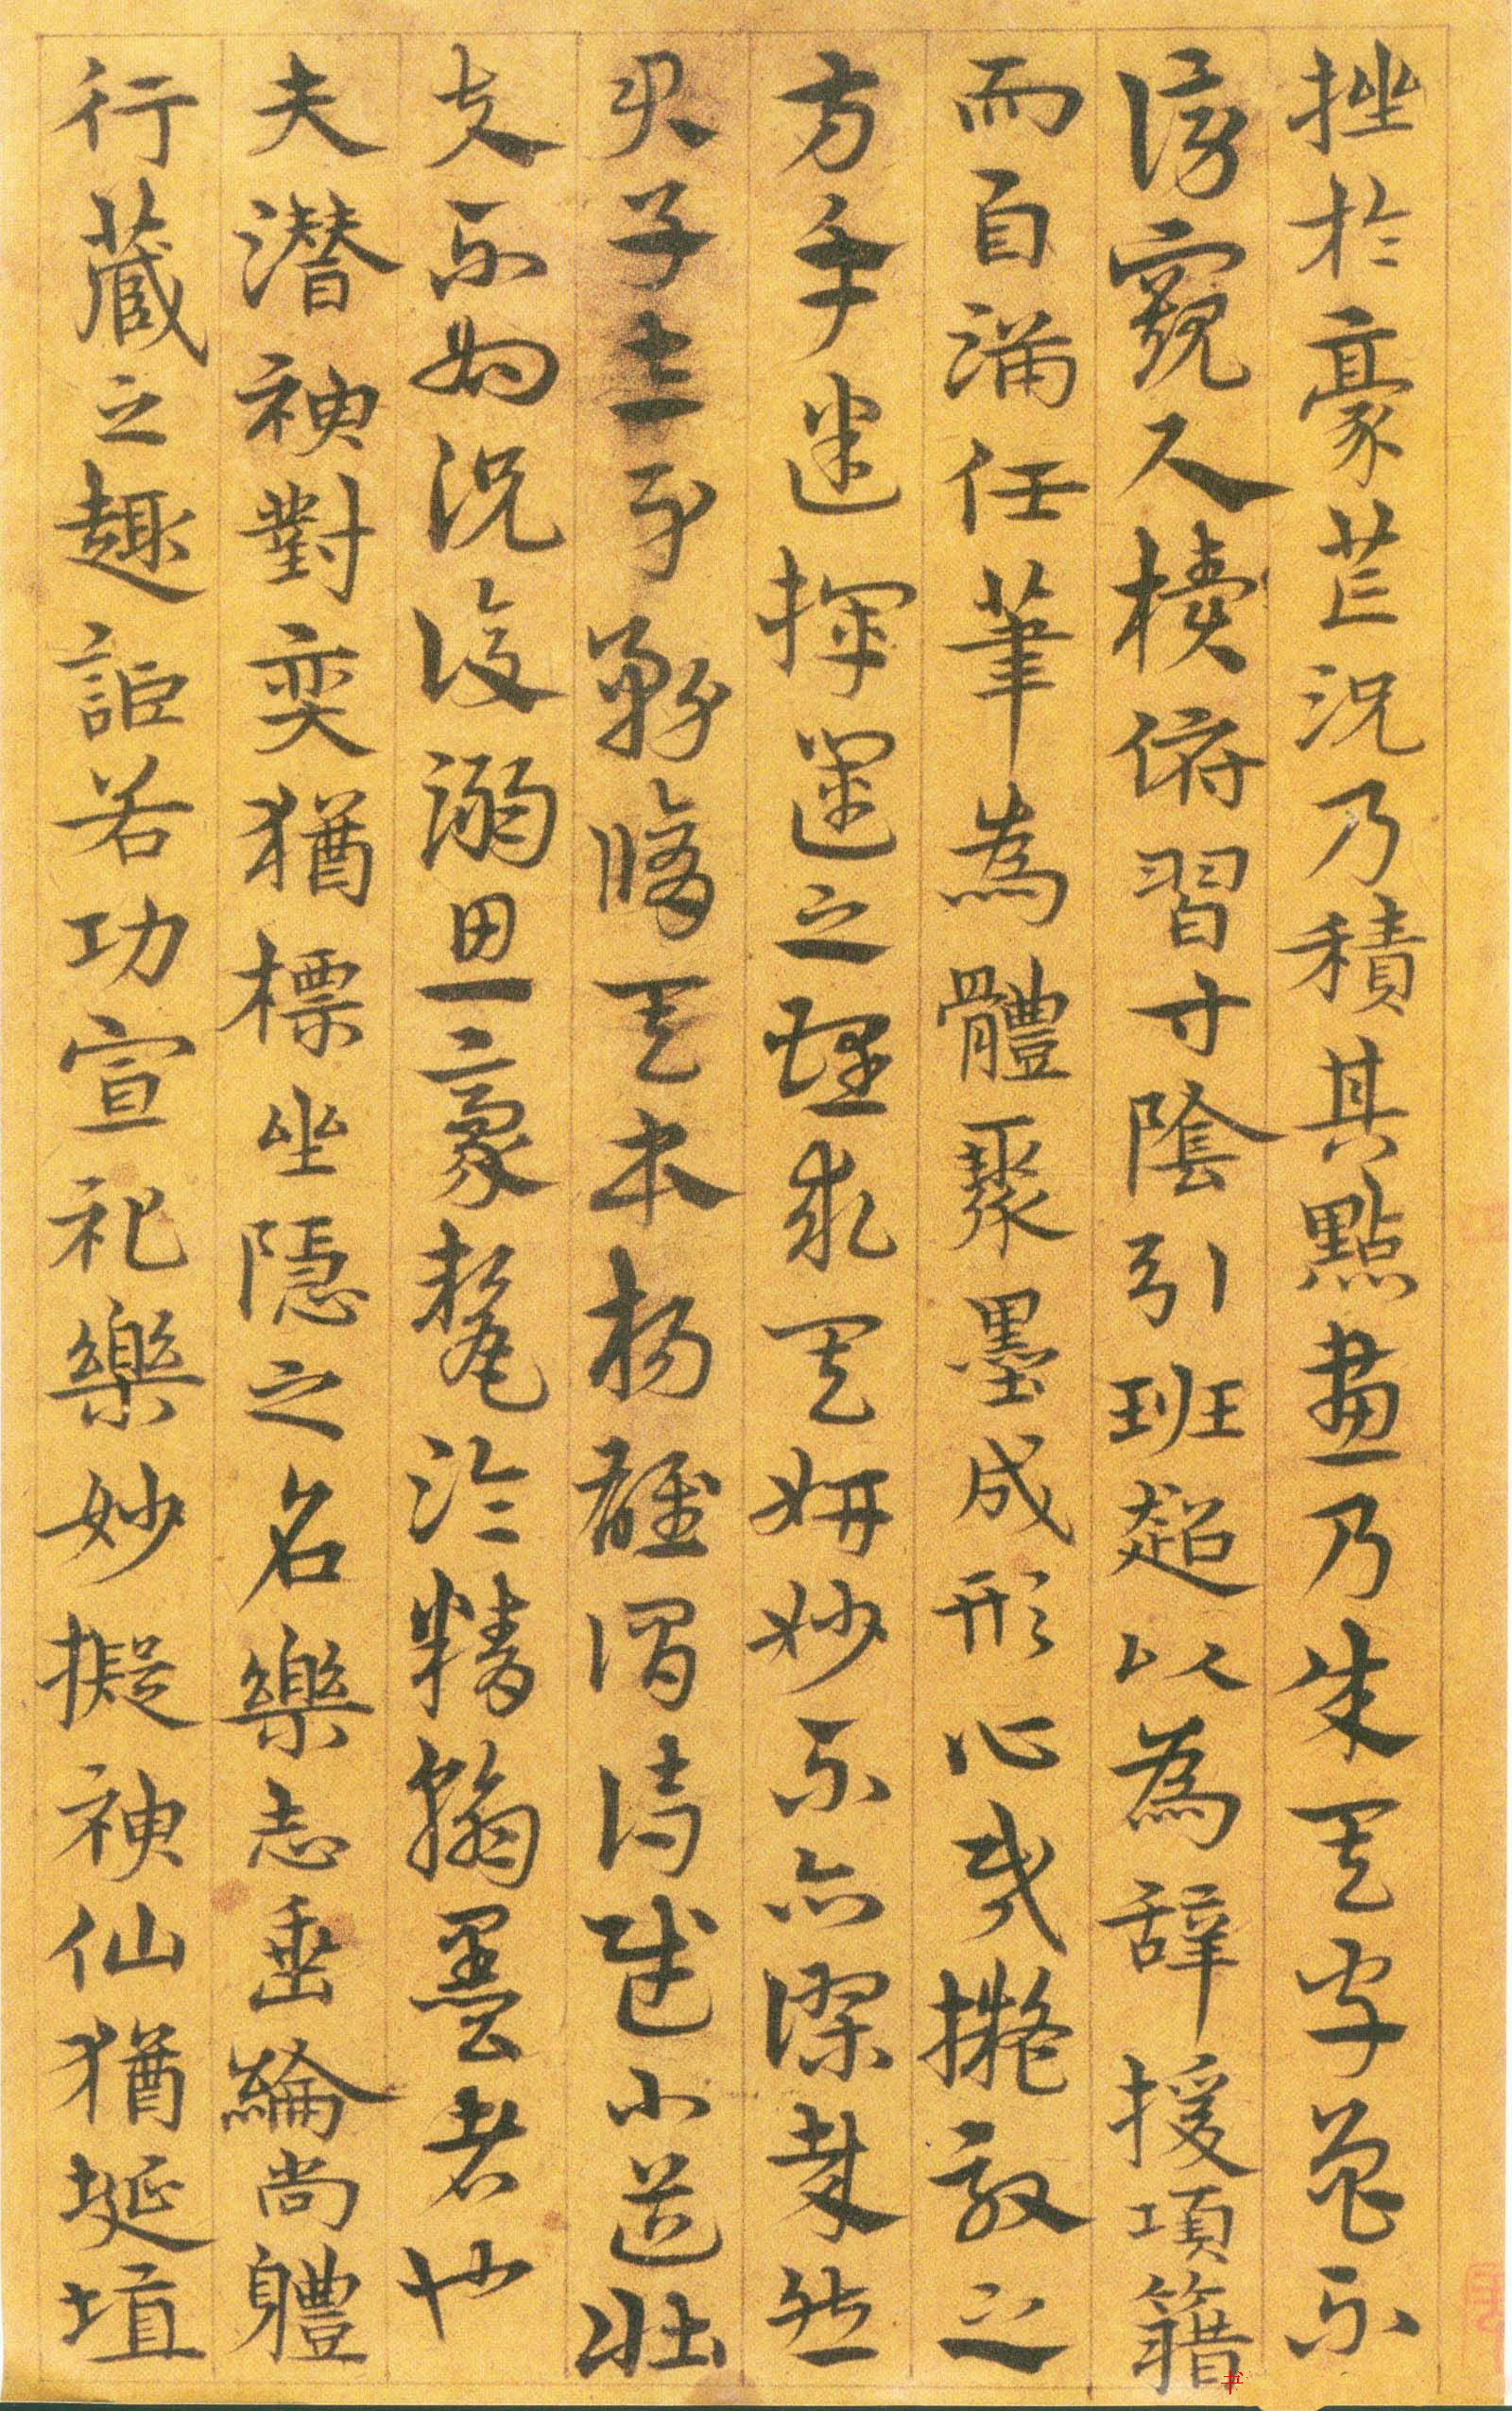 挫於豪芒況乃積其點畫乃成其字曾不
傍窺尺牘俯習寸陰引班超以為辭援項籍
而自滿任筆為體聚墨成形心昏擬效之
方手迷揮運之理求其妍妙不亦謬哉然
君子立身務修其本楊雄謂詩賦小道壯
夫不為況復溺思豪氂淪精翰墨者也
夫潛神對奕猶標坐隱之名樂志垂綸尚軆
行藏之趣詎若功宣礼樂妙擬神仙猶埏埴